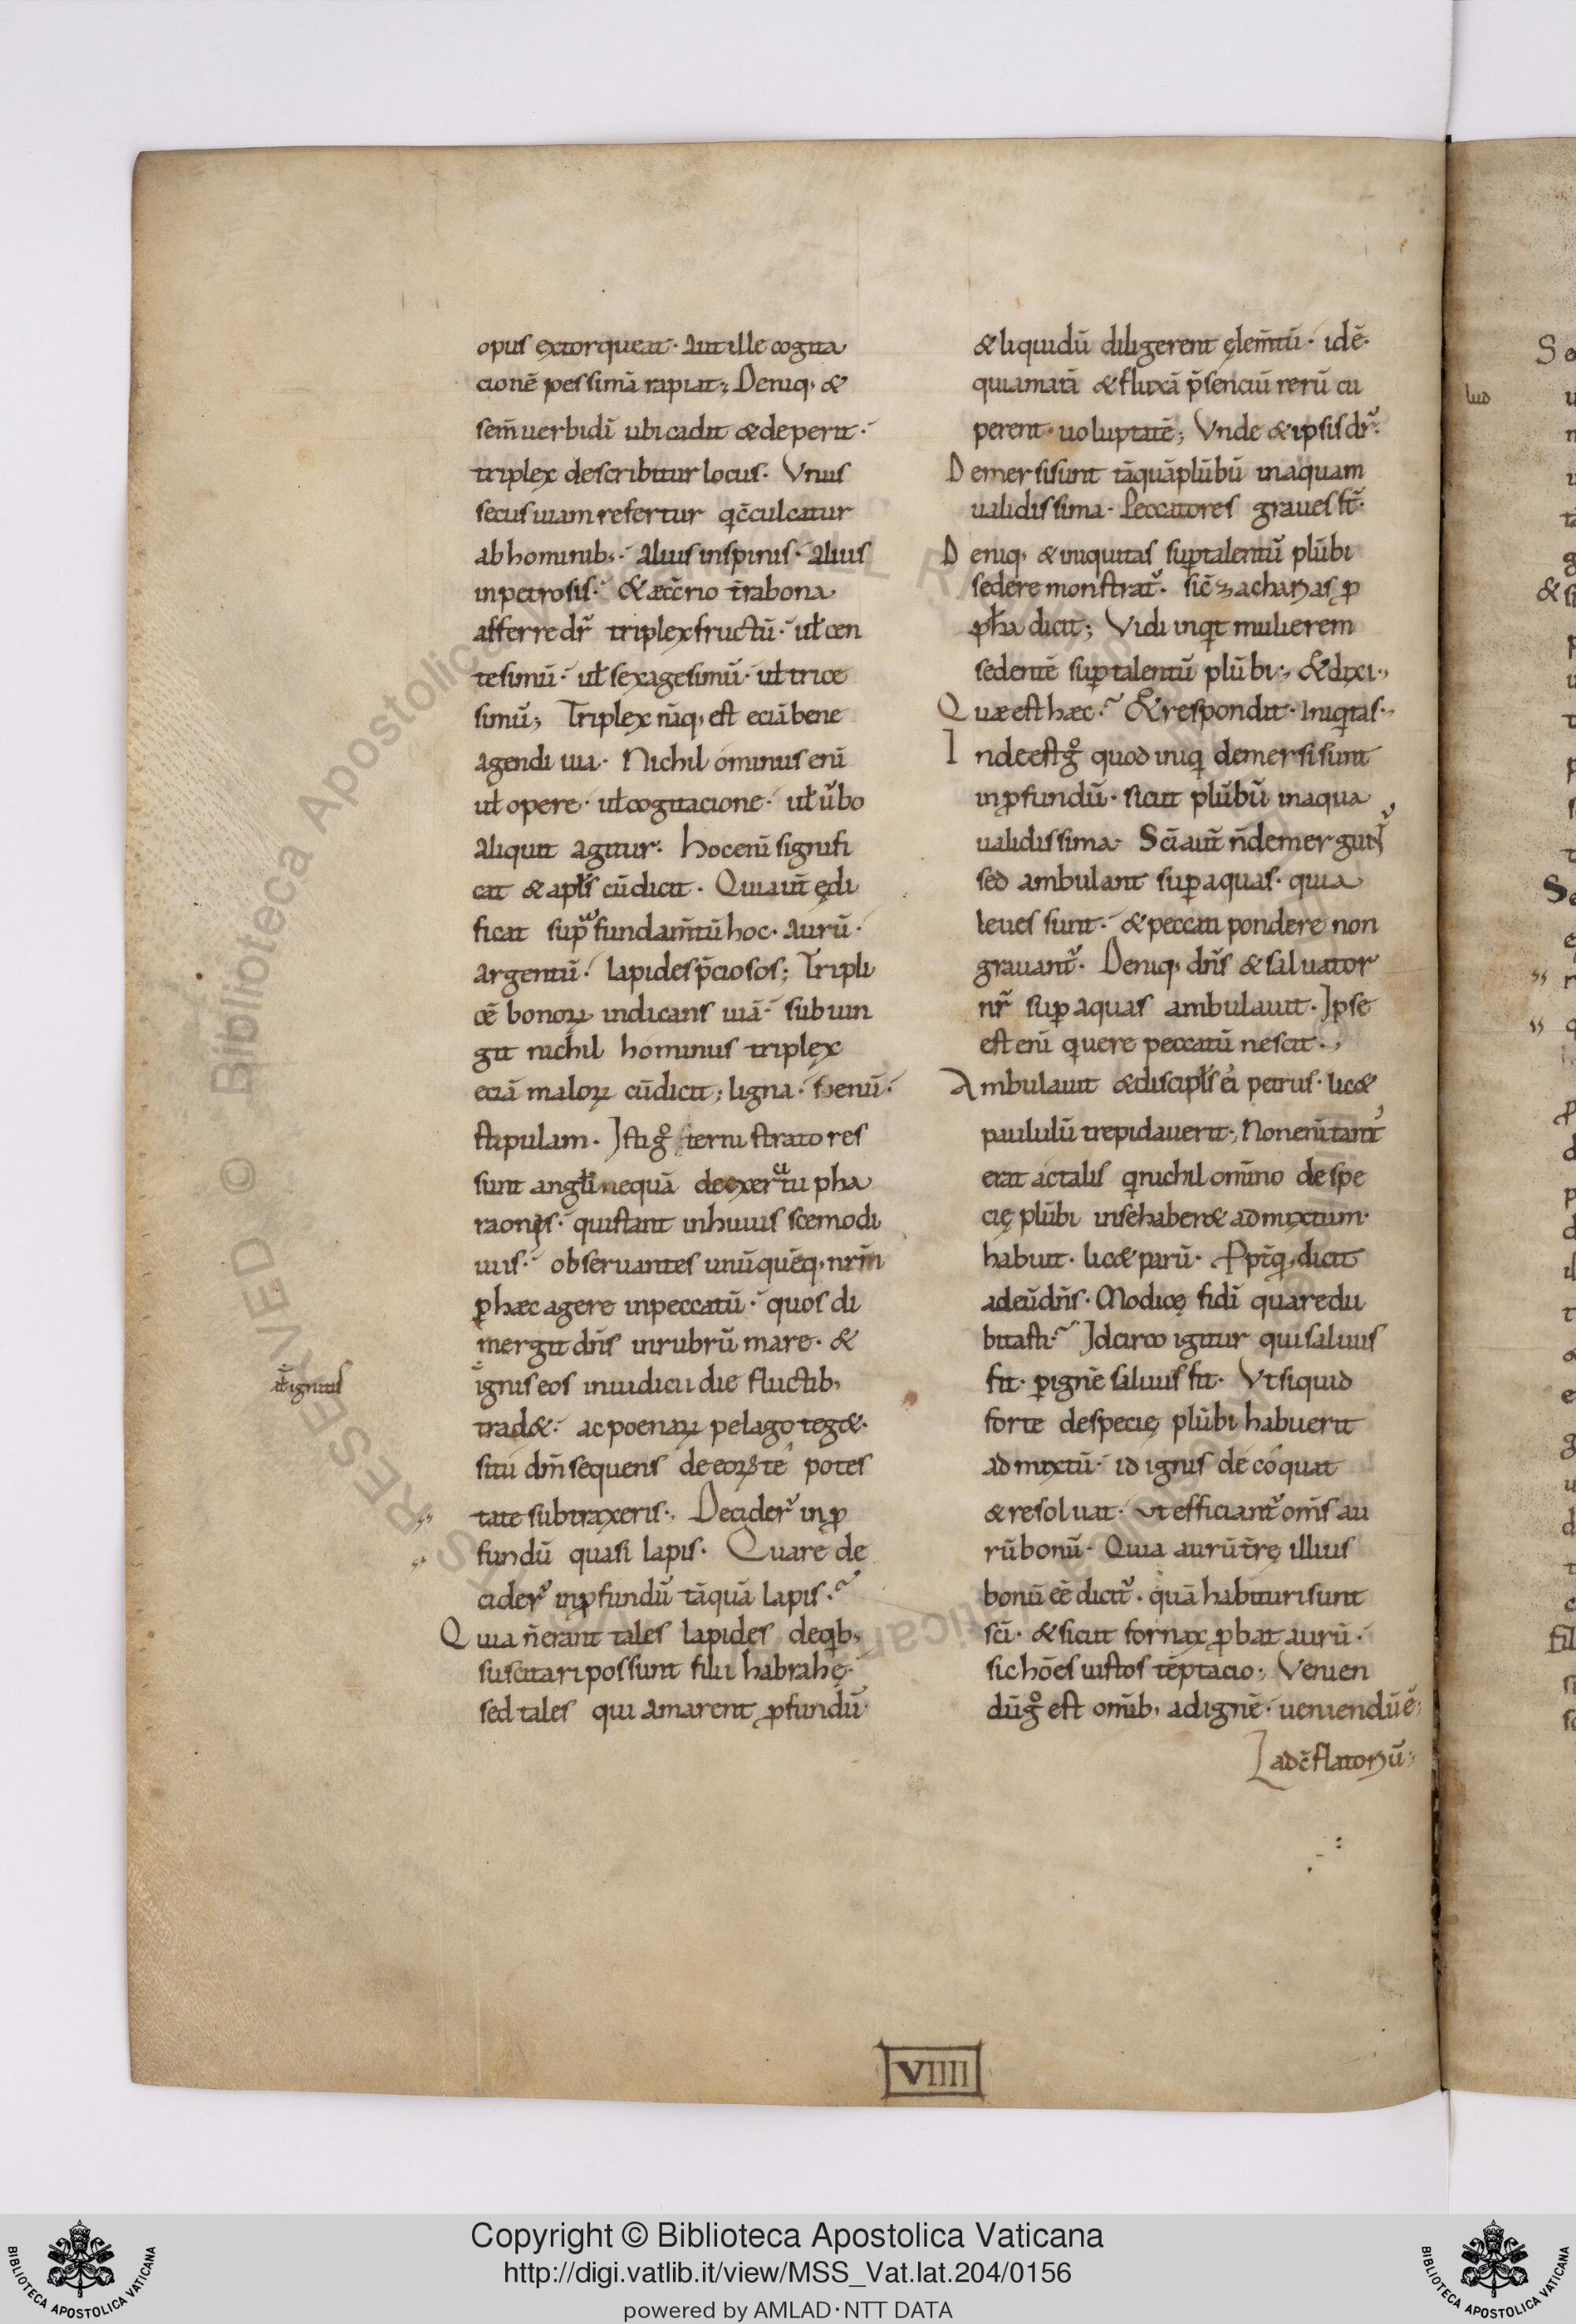 opus extorqueat· aut ille cogita
cionē pessimā rapiat; Deniq; &
sem̄ uerbi dī ubi cadit & deperit·
triplex describitur locus· Vnus
secus uiam refertur qđ c̄culcatur
ab hominib;· alius in spinis· alius
in petrosis· & æc̄c̄rio t̄ra bona
afferre dr̄ triplex fructū· ul̄ cen
tesimū· ul̄ sexagesimū· ul̄ trice
simū; Triplex nāq; est eciā bene
agendi uia· Nichil ominus enī
ul̄ opere· ul̄ cogitacione· ul̄ ūbo
aliquit agitur· hoc enī signifi
cat & apl̄s cū dicit· Qui aut̄ ędi
ficat sup̱ fundam̄tū hoc· aurū·
argentū· lapides p̄ciosos; Tripli
cē bonoꝝ indicans uiā· subiun
git nichil hominus triplex
eciā maloꝝ cū dicit; ligna· fenū·
stipulam· Isti gͦ ternistratores
sunt angl̄i nequā de exercitu pha
raonis· qui stant in huius scemodi
uiis· obseruantes unūquēq; nr̄m
ꝑ hæc agere in peccatū· quos di
mergit dn̄s in rubrū mare· &
ignis eos in iudicii die fluctib;
trad&· ac poenaꝝ pelago teg&·
si tu dm̄ sequens de eoꝝ te potes
tate subtraxeris·, Decider̄ in ꝓ
fundū quasi lapis· Quare de
cider̄ in ꝓfundū tāquā lapis·?
Quia n̄ erant tales lapides de qib;
suscitari possunt filii habrahę·
sed tales qui amarent ꝓfundū·
ł ignitus
& liquidū diligerent ęlem̄tū· id ē·
quia matā & fluxā p̄senciū rerū cu
perent uoluptatē; Vnde & ipsis dr̄·
Demersi sunt tāquā plūbū in aquam
ualidissima· Peccatores graues st̄·
Deniq; & iniquitas suꝑ talentū plūbi
sedere monstrat᷑· sic̄ zacharias ꝓ
ph̄a dicit; Vidi inqit mulierem
sedentē suꝑ talentū plūbi·, & dixi·,
Quæ est hæc·? & respondit· Iniqitas·,
Inde est gͦ quod iniqi demersi sunt
in ꝓfundū· sicut plūbū in aqua
ualidissima· Sc̄i aut̄ n̄ demergunt᷑
sed ambulant suꝑ aquas· quia
leues sunt· & peccati pondere non
grauant᷑· Deniq; dn̄s & saluator
nr̄ suꝑ aquas ambulauit· Ipse
est enī quere peccatū nescit·,
Ambulauit & discipl̄s ei petrus· lic&
paululū trepidauerit·, Non enī tant᷑
erat ac talis qi nichil omīno de spe
cię plūbi in se haber& admixtum·
habuit· lic& parū· Ꝓptq; dicit
ad eū dn̄s· Modicę fidī quare du
bitasti·? Idcirco igitur qui saluus
fit· ꝑ ignē saluus fit· Vt si quid
forte de specię plūbi habuerit
admixtū· id ignis decoquat
& resoluat· ut efficiant᷑ om̄s au
rū bonū· Quia aurū t̄rę illius
bonū eē dicit᷑· quā habituri sunt
sc̄i· & sicut fornax ꝓbat aurū·
sic hōes iustos tēptacio·, Venien
dū gͦ est omīb; ad ignē· ueniendū ē
ad c̄flatoriū·,
VIIII
lud
BIBLIOTECA APOSTOLICA VATICANA
Copyright © Biblioteca Apostolica Vaticana
http://digi.vatlib.it/view/MSS_Vat.lat.204/0156
powered by AMLAD·NTT DATA
BIBLIOTECA APOSTOLICA VATICANA